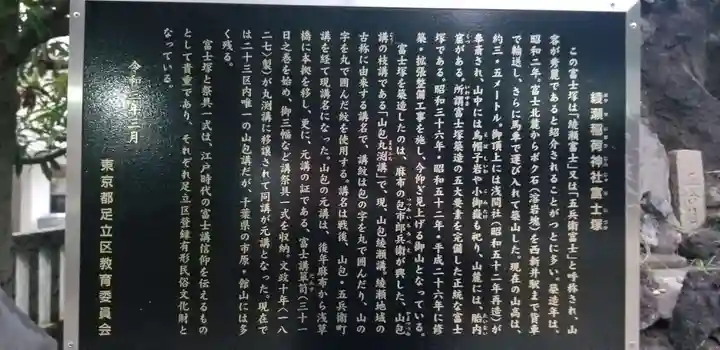 綾瀬稲荷神社富士塚
あやせいなりじんじゃふじづか
この富士塚は「綾瀬富士」又は「五兵衛富士」と呼称され、山
容が秀麗であると紹介されることがつとに多い。築造年は、
昭和二年。富士北麓からボク石(溶岩塊)を西新井駅まで貨車
で輸送し、さらに馬車で運び入れて築山した。現在の山高は、
約三・五メートル。御頂上には浅間社(昭和五十二年再造)が
奉斎され、山中には烏帽子岩や小御嶽も祀り、山麓には、胎内
窟がある。所謂富士塚築造の五大要素を完備した正統な富士
塚である。昭和三十六年・昭和五十二年・平成二十六年に修
築・拡張整備工事を施し、今仰ぎ見上げる御山となっている。
富士塚を築造したのは、麻布の包市郎兵衛が興した、山包
講の枝講である「山包丸渕講」で、現、山包綾瀬講。綾瀬地域の
古称に由来する講名で、講紋は包の字を丸で囲んだり、山の
字を丸で囲んだ紋を使用する。講名は戦後、山包・五兵衛町
講を経て現講名になった。山包の元講は、後年麻布から浅草
橋に本拠を移し、更に、元講の証である、富士講箪笥(三十一
日之巻を始め、御三幅など講祭具一式を収納。文政十年〈一八
二七〉製)が丸渕講に移譲されて同講が元講となった。現在で
は二十三区内唯一の山包講だが、千葉県の市原・館山には多
く残る。
富士塚と祭具一式は、江戸時代の富士講信仰を伝えるもの
として貴重であり、それぞれ足立区登録有形民俗文化財と
なっている。
令和 年三月
東京都足立区教育委員会